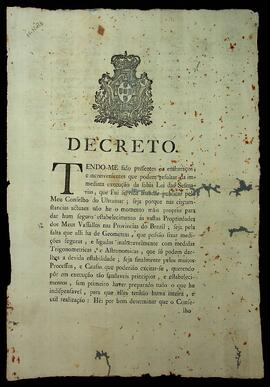 DECRETO.
TENDO-ME sido presentes os embaraços,
e inconvenientes que podem resultar da im-
mediata execução da sabia Lei das Sesma-
rias, que Fui servida mandar publicar pelo
Meu Conselho do Ultramar; seja porque nas circum-
stancias actuaes não he o momento mais proprio para
dar hum seguro estabelecimento ás vastas Propriedades
dos Meus Vassallos nas Provincias do Brazil; seja pela
falta que alli ha de Geometras, que possão fixar medi-
ções seguras, e ligadas inalteravelmente com medidas
Trigonometricas, e Astronomicas, que só podem dar-
lhes a devida estabilidade; seja finalmente pelos muitos
Processos, e Causas que poderião excitar-se, querendo
pôr em execução tão saudaveis principios, e estabeleci-
mentos, sem primeiro haver preparado tudo o que he
indispensavel, para que elles tenhão huma inteira, e
util realização: Hei por bem determinar que o Conse-
lho